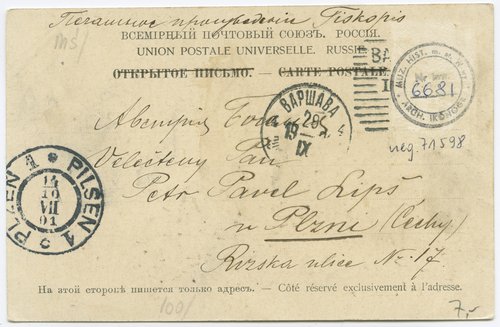 Печатное произведеніе Tiskopis
ВСЕМІРНЫЙ ПОЧТОВЫЙ СОЮЗЪ. РОССІЯ.
UNION POSTALE UNIVERSELLE. RUSSIE.
ОТКРЫТОЕ ПИСЬМО. — CARTE POSTALE.
6681
ВАРШАВА
IX
neg. 71598
Velectěný Pan
Petr Pavel Lipš
v Plzni (Čechy)
ulice N: 17
PILSEN 1
PLZEŇ 1
VII
На этой сторонѣ пишется только адресъ. — Côté réservé exclusivement à l'adresse.
100/
7,-